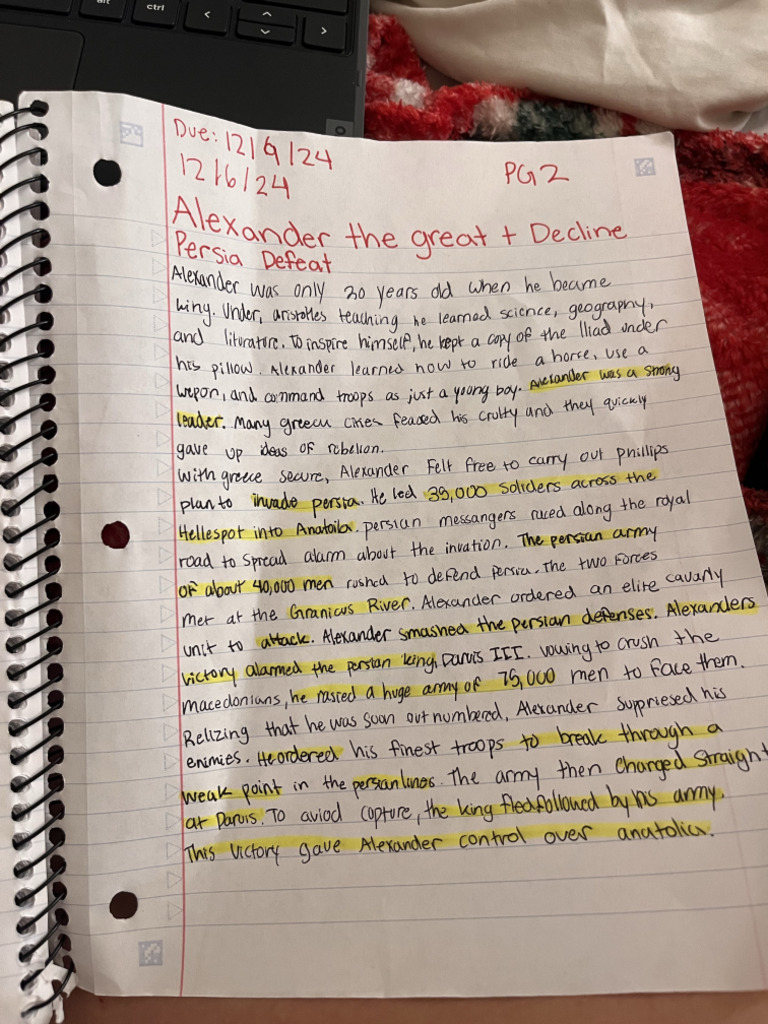 alt
ctrl
<
^
v
>
Due: 12/9/24
12/6/24
PG 2
Alexander the great + Decline
Persia Defeat
Alexander was only 20 years old when he became
king. Under, aristotles teaching he learned science, geography,
and liturature. To inspire himself, he kept a copy of the Iliad under
his pillow. Alexander learned how to ride a horse, use a
wepon, and command troops as just a young boy. Alexander was a strong
leader. Many greecu cities feased his crulty and they quickly
gave up ideas of rebelion.
With greece secure, Alexander Felt free to carry out phillips
plan to invade persia. He led 35,000 Soliders across the
Hellespot into Anatoila. persian messangers raced along the royal
road to spread alarm about the invation. The persian army
of about 40,000 men rushed to defend Persia. The two Forces
met at the Granicus River. Alexander ordered an elite cavarly
unit to attack. Alexander smashed the persian defenses. Alexanders
victory alarmed the persian king, Daruis III. vowing to crush the
macedonians, he rasied a huge army of 75,000 men to face them.
Relizing that he was soon outnumbered, Alexander suppriesed his
enimies. He ordered his finest troops to break through a
weak point in the persian lines. The army then charged straight
at Daruis. To aviod capture, the king fled followed by his army.
This victory gave Alexander control over anatolia.